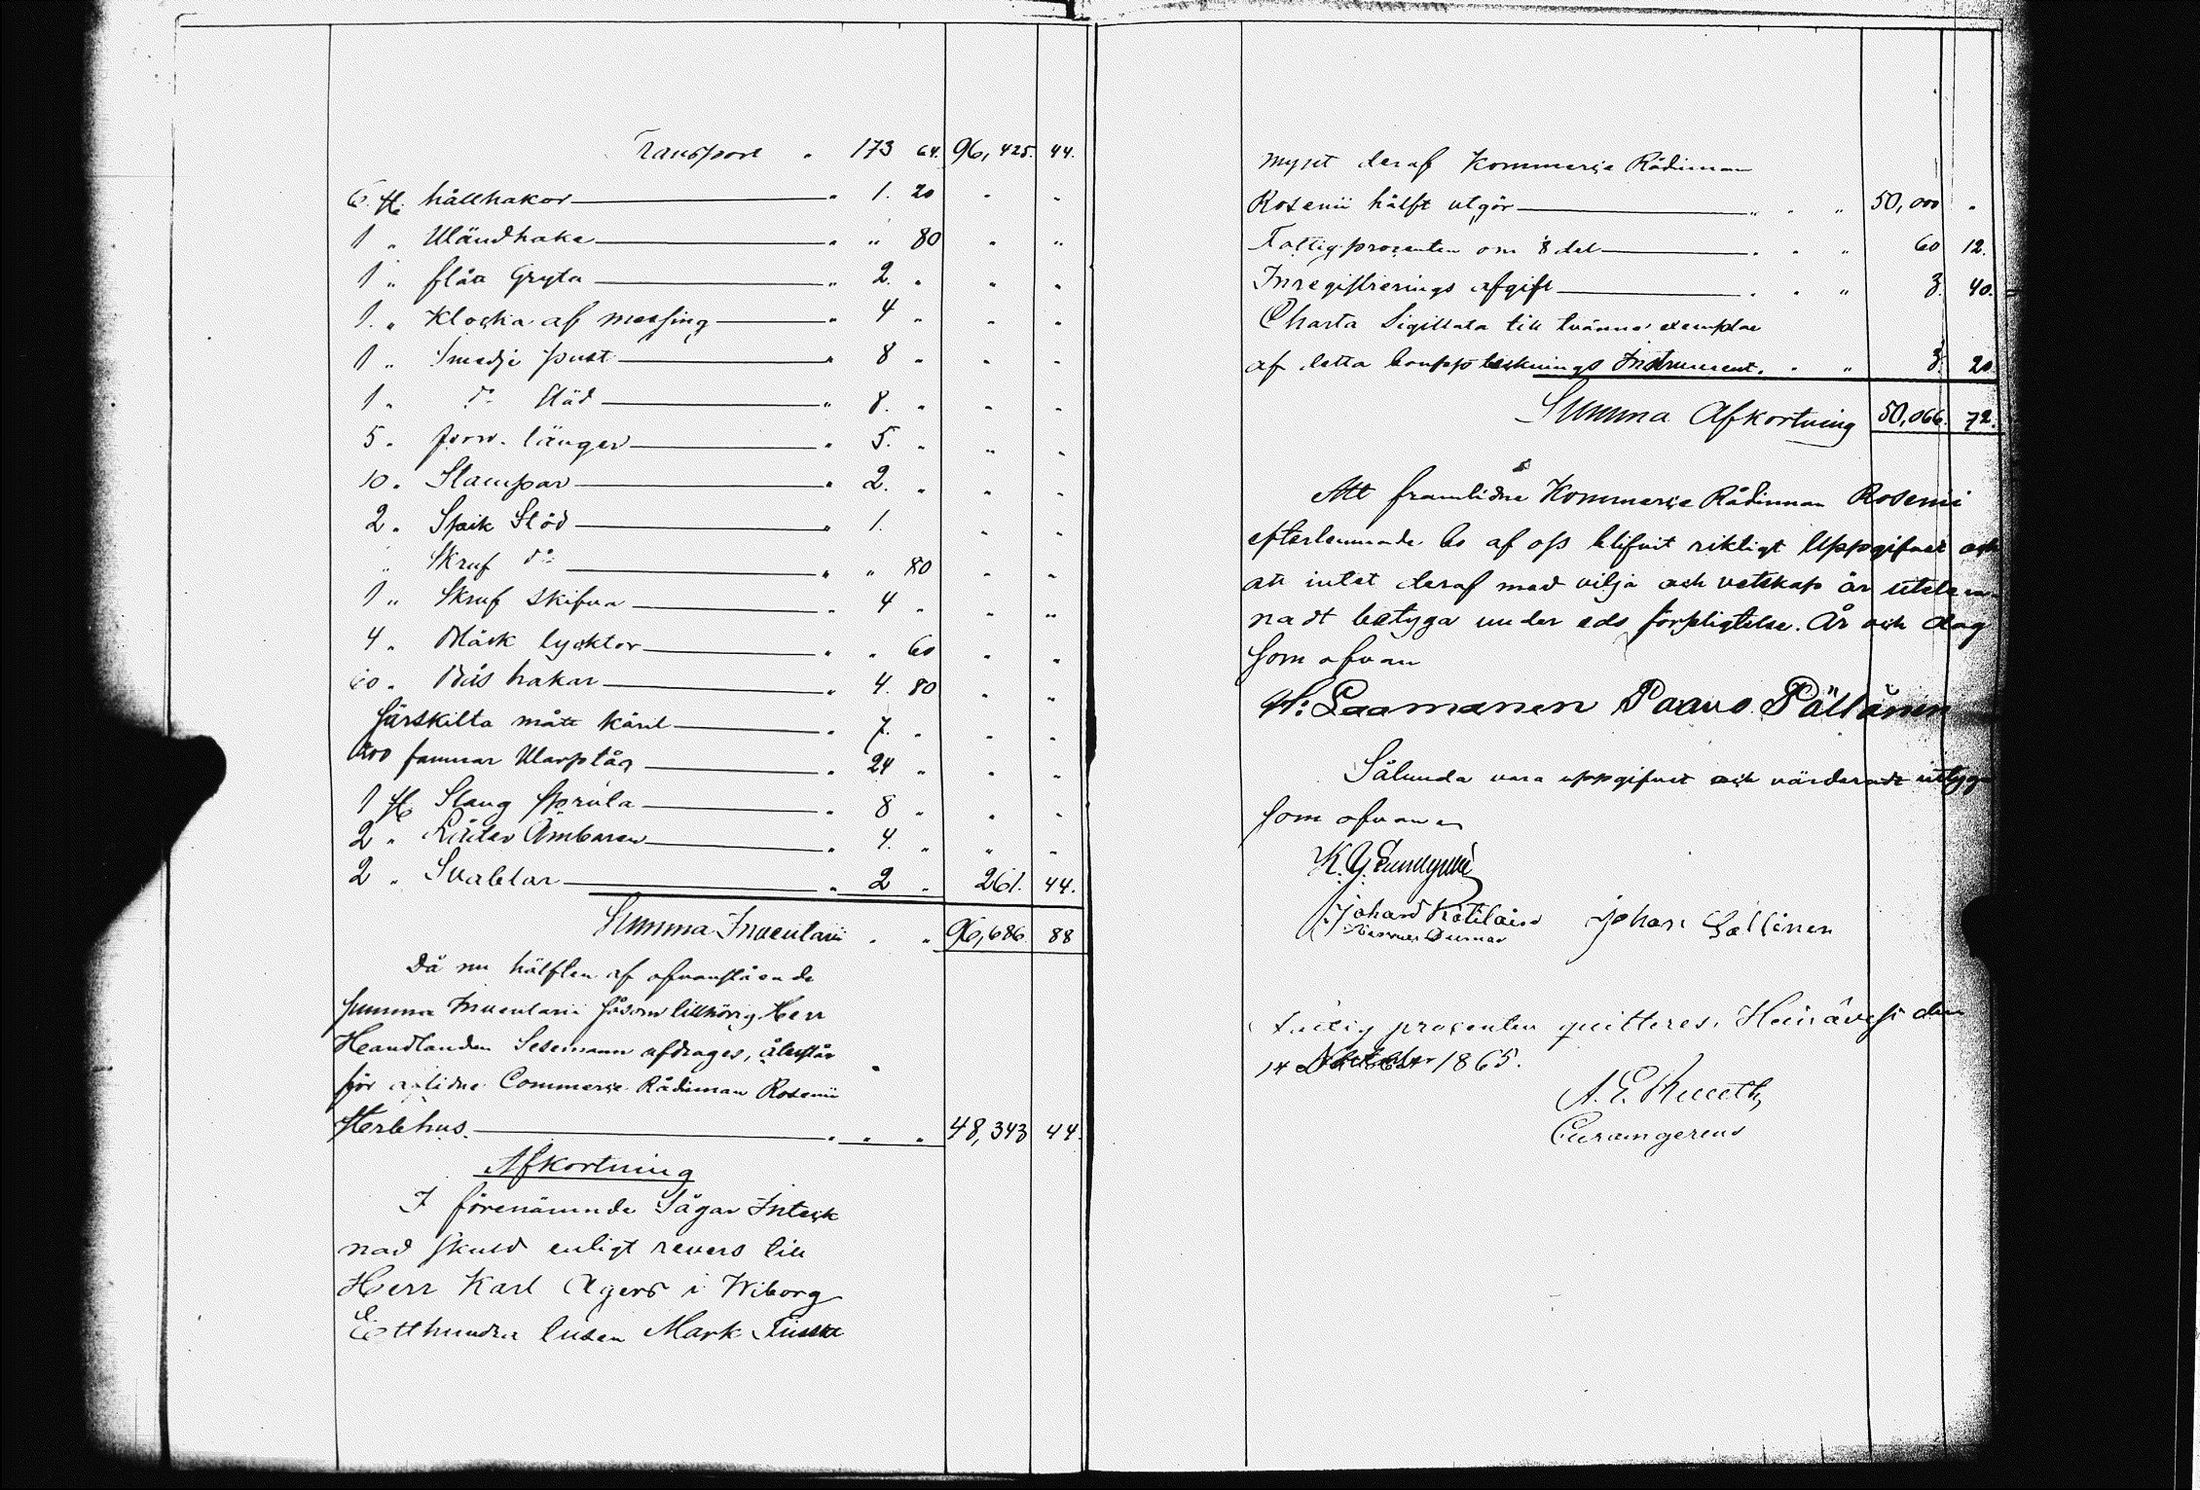 Transport " 173 64. 96,425. 44.
6. st. hållhakor " 1. 20 " "
1 " Wändhake " " 80 " "
1 " flått Gryta " 2. " " "
1. " Klocka af messing " 4 " " "
1 " Smedje pust " 8 " " "
1 " do Städ " 8. " " "
5. " länger " 5. " " "
10. " Stampar " 2. " " "
2. " Spik Stöd " 1. " "
" Skruf do " " 80 " "
1 " Skruf skifva " 4 " " "
4. " lycktor " " 60 " "
" hakar " 4. 80 " "
Särskilta mått käril " 7. " " "
famnar Warptåg " 24 " " "
1 st. Slang " 8 " " "
2 " Läder Ämbaren " 4. " " "
2 " Svablar " 2 " 261. 44.
Summa Inventarii " " 96,686 88
Då nu hälften af ofvanstående
summa Inventarii såsom tillhörig Herr
Handlanden Sesemann afdrages, återstår
för aflidne Commerce Rådman Rosenii
Sterbhus. " " " 48,343 44.
Afkortning
I förenämnde Sågar Inteck
nad skuld enligt revers till
Herr Karl i Wiborg
Etthundra tusen Mark Finska
mynt deraf Kommerce Rådman
Rosenii hälft utgör " " " 50,000 "
Fattigprocenten om 1/8 del " " " 60 12.
Inregistrerings afgift " " " 3. 40.
Charta Sigillata till tvänne exemplar
af detta boupptecknings Instrument. " " 3. 20.
Summa Afkortning 50,066. 72.
Att framlidne Kommerce Rådman Rosenii
efterlemnade bo af oss blifvit riktigt uppgifvet och
att intet deraf med vilja och vetskap är utelem-
nadt betyga under eds förpligtelse. År och dag
som ofvan
H: Laamanen Paavo Pällänen
Sålunda vara uppgifvet och värderadt intyga
som ofvan
K. G.
Johan Johan
procenten quitteras, Heinävesi den
14 1865.
A. E.
Curam gerens